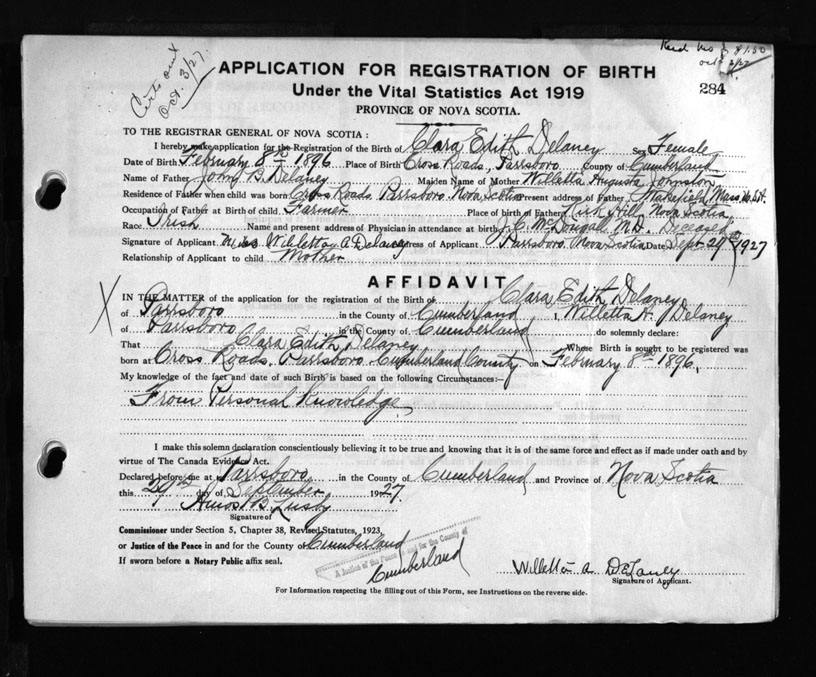 Certs out
Oct. 3/27.
$1.50
Oct 3/27
APPLICATION FOR REGISTRATION OF BIRTH
Under the Vital Statistics Act 1919
284
PROVINCE OF NOVA SCOTIA.
TO THE REGISTRAR GENERAL OF NOVA SCOTIA:
I hereby make application for the Registration of the Birth of Clara Edith Delaney Sex Female
Date of Birth February 8th 1896 Place of Birth Cross Roads, Parrsboro County of Cumberland
Name of Father John B. Delaney Maiden Name of Mother Willetta Augusta Johnston
Residence of Father when child was born Cross Roads Parrsboro Nova Scotia Present address of Father Wakefield, Mass. U.S.A.
Occupation of Father at Birth of child. Farmer Place of birth of Father Kirk Hill, Nova Scotia
Race Irish Name and present address of Physician in attendance at birth C. McDougal M.D. Deceased
Signature of Applicant Mrs. Willetta A Delaney Address of Applicant Parrsboro Nova Scotia Date Sept 29th 1927
Relationship of Applicant to child Mother
AFFIDAVIT
X
IN THE MATTER of the application for the registration of the Birth of Clara Edith Delaney
of Parrsboro in the County of Cumberland I, Willetta A. Delaney
of Parrsboro in the County of Cumberland do solemnly declare:
That Clara Edith Delaney Whose Birth is sought to be registered was
born at Cross Roads, Parrsboro Cumberland County on February 8th 1896.
My knowledge of the fact and date of such Birth is based on the following Circumstances:—
From Personal Knowledge
I make this solemn declaration conscientiously believing it to be true and knowing that it is of the same force and effect as if made under oath and by
virtue of The Canada Evidence Act.
Declared before me at Parrsboro in the County of Cumberland and Province of Nova Scotia
this 29th day of September 1927.
Amos B. Lusby
Signature of
Commissioner under Section 5, Chapter 38, Revised Statutes, 1923,
or Justice of the Peace in and for the County of Cumberland
A Justice of the Peace in and for the County of
Cumberland
If sworn before a Notary Public affix seal.
Willetta A Delaney
Signature of Applicant.
For Information respecting the filling out of this Form, see Instructions on the reverse side.